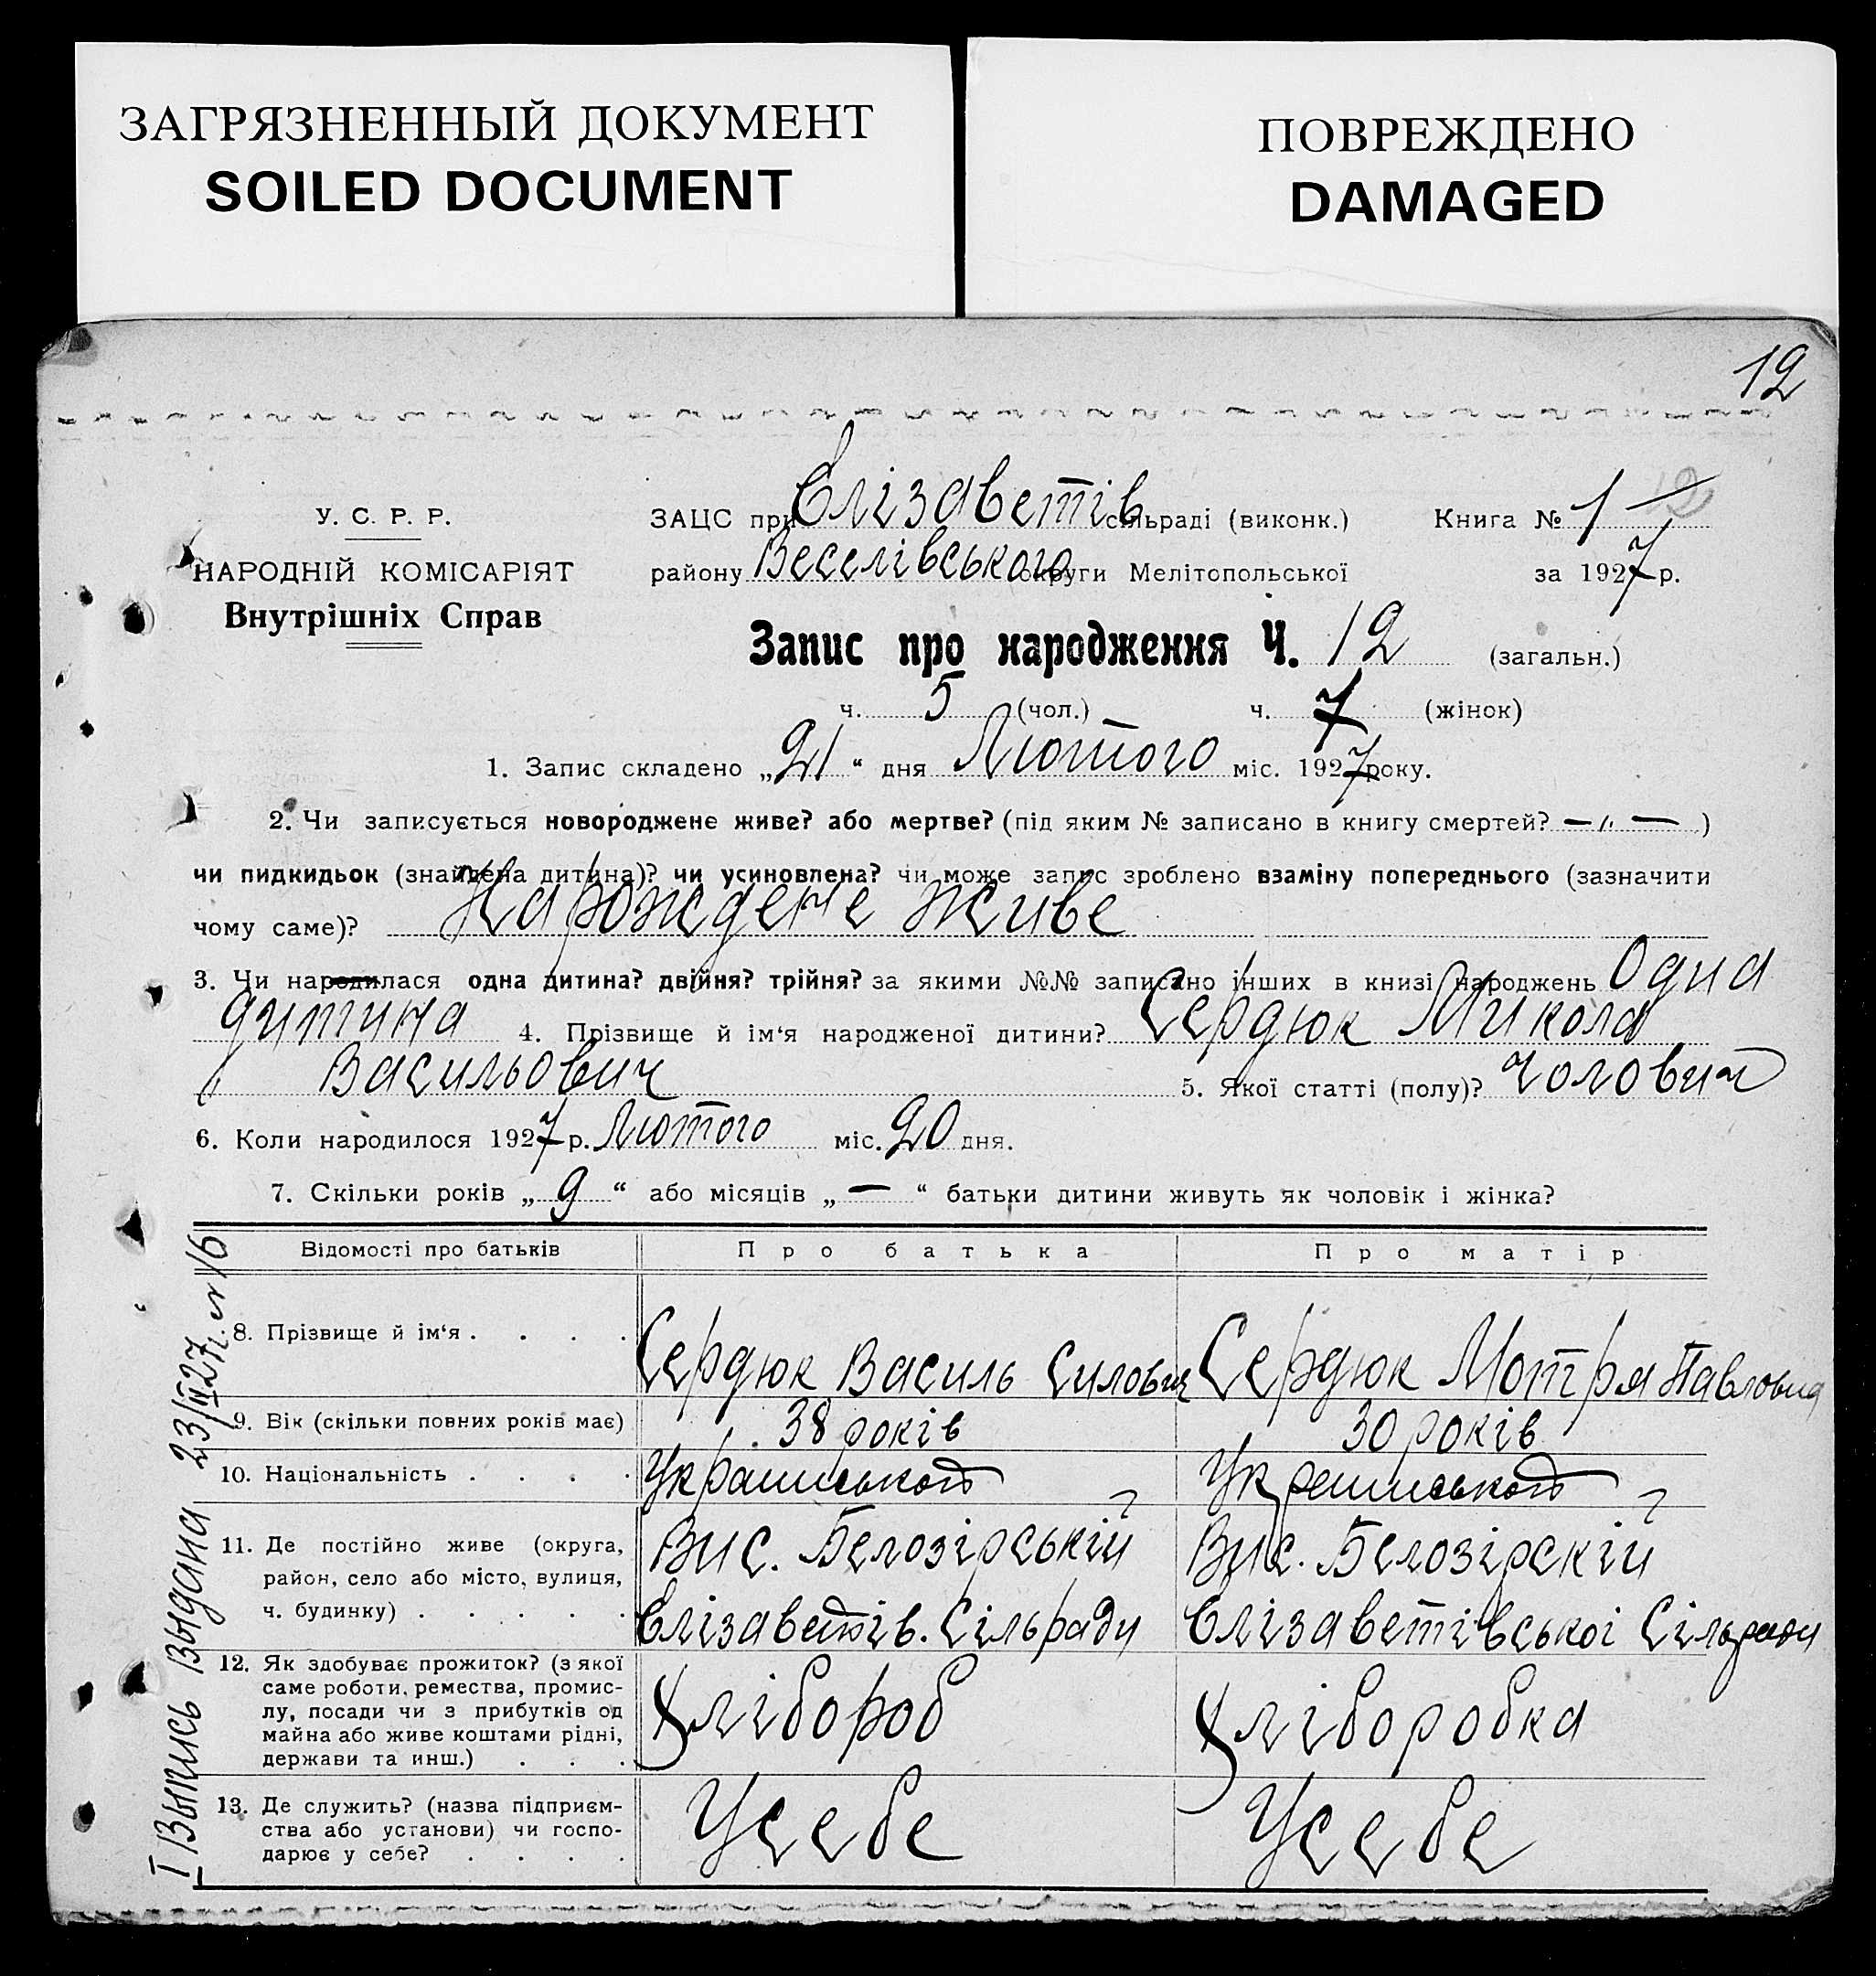 ЗАГРЯЗНЕННЫЙ ДОКУМЕНТ
SOILED DOCUMENT
ПОВРЕЖДЕНО
DAMAGED
12
У. С. Р. Р.
НАРОДНІЙ КОМІСАРІЯТ
Внутрішніх Справ
ЗАЦС при Єлізаветів сільраді (виконк.)
району Веселівського округи Мелітопольської
Книга № 1 12
за 1927 р.
Запис про народження Ч. 12 (загальн.)
ч. 5 (чол.) ч. 7 (жінок)
1. Запис складено „21“ дня Лютого міс. 1927 року.
2. Чи записується новороджене живе? або мертве? (під яким № записано в книгу смертей? — „ — )
чи пидкидьок (знайдена дитина)? чи усиновлена? чи може запис зроблено взаміну попереднього (зазначити
чому саме)? Нарождене живе
3. Чи народилася одна дитина? двійня? трійня? за якими №№ записано інших в книзі народжень Одна
дитина 4. Прізвище й ім‘я народженої дитини? Сердюк Микола
Васильович 5. Якої статті (полу)? чолович
6. Коли народилося 1927 р. Лютого міс. 20 дня.
7. Скільки років „9“ або місяців „—“ батьки дитини живуть як чоловік і жінка?
Відомості про батьків Про батька Про матір
8. Прізвище й ім‘я . . . . Сердюк Василь Силович Сердюк Мотря Павловна
9. Вік (скільки повних років має) 38 років 30 років
10. Національність . . . .
11. Де постійно живе (округа,
район, село або місто, вулиця,
ч. будинку) . . . . .
Вис. Белозірській
Єлізаветів. Сільради
Вис. Белозірскій
Єлізаветівської Сільради
12. Як здобуває прожиток? (з якої
саме роботи, ремества, промис-
лу, посади чи з прибутків од
майна або живе коштами рідні,
держави та инш.) . . .
Хлібороб
Хліборобка
13. Де служить? (назва підприєм-
ства або установи) чи госпо-
дарює у себе? . . . .
Усебе
Усебе
I Выпись выдана 23/III 27 г. № 16